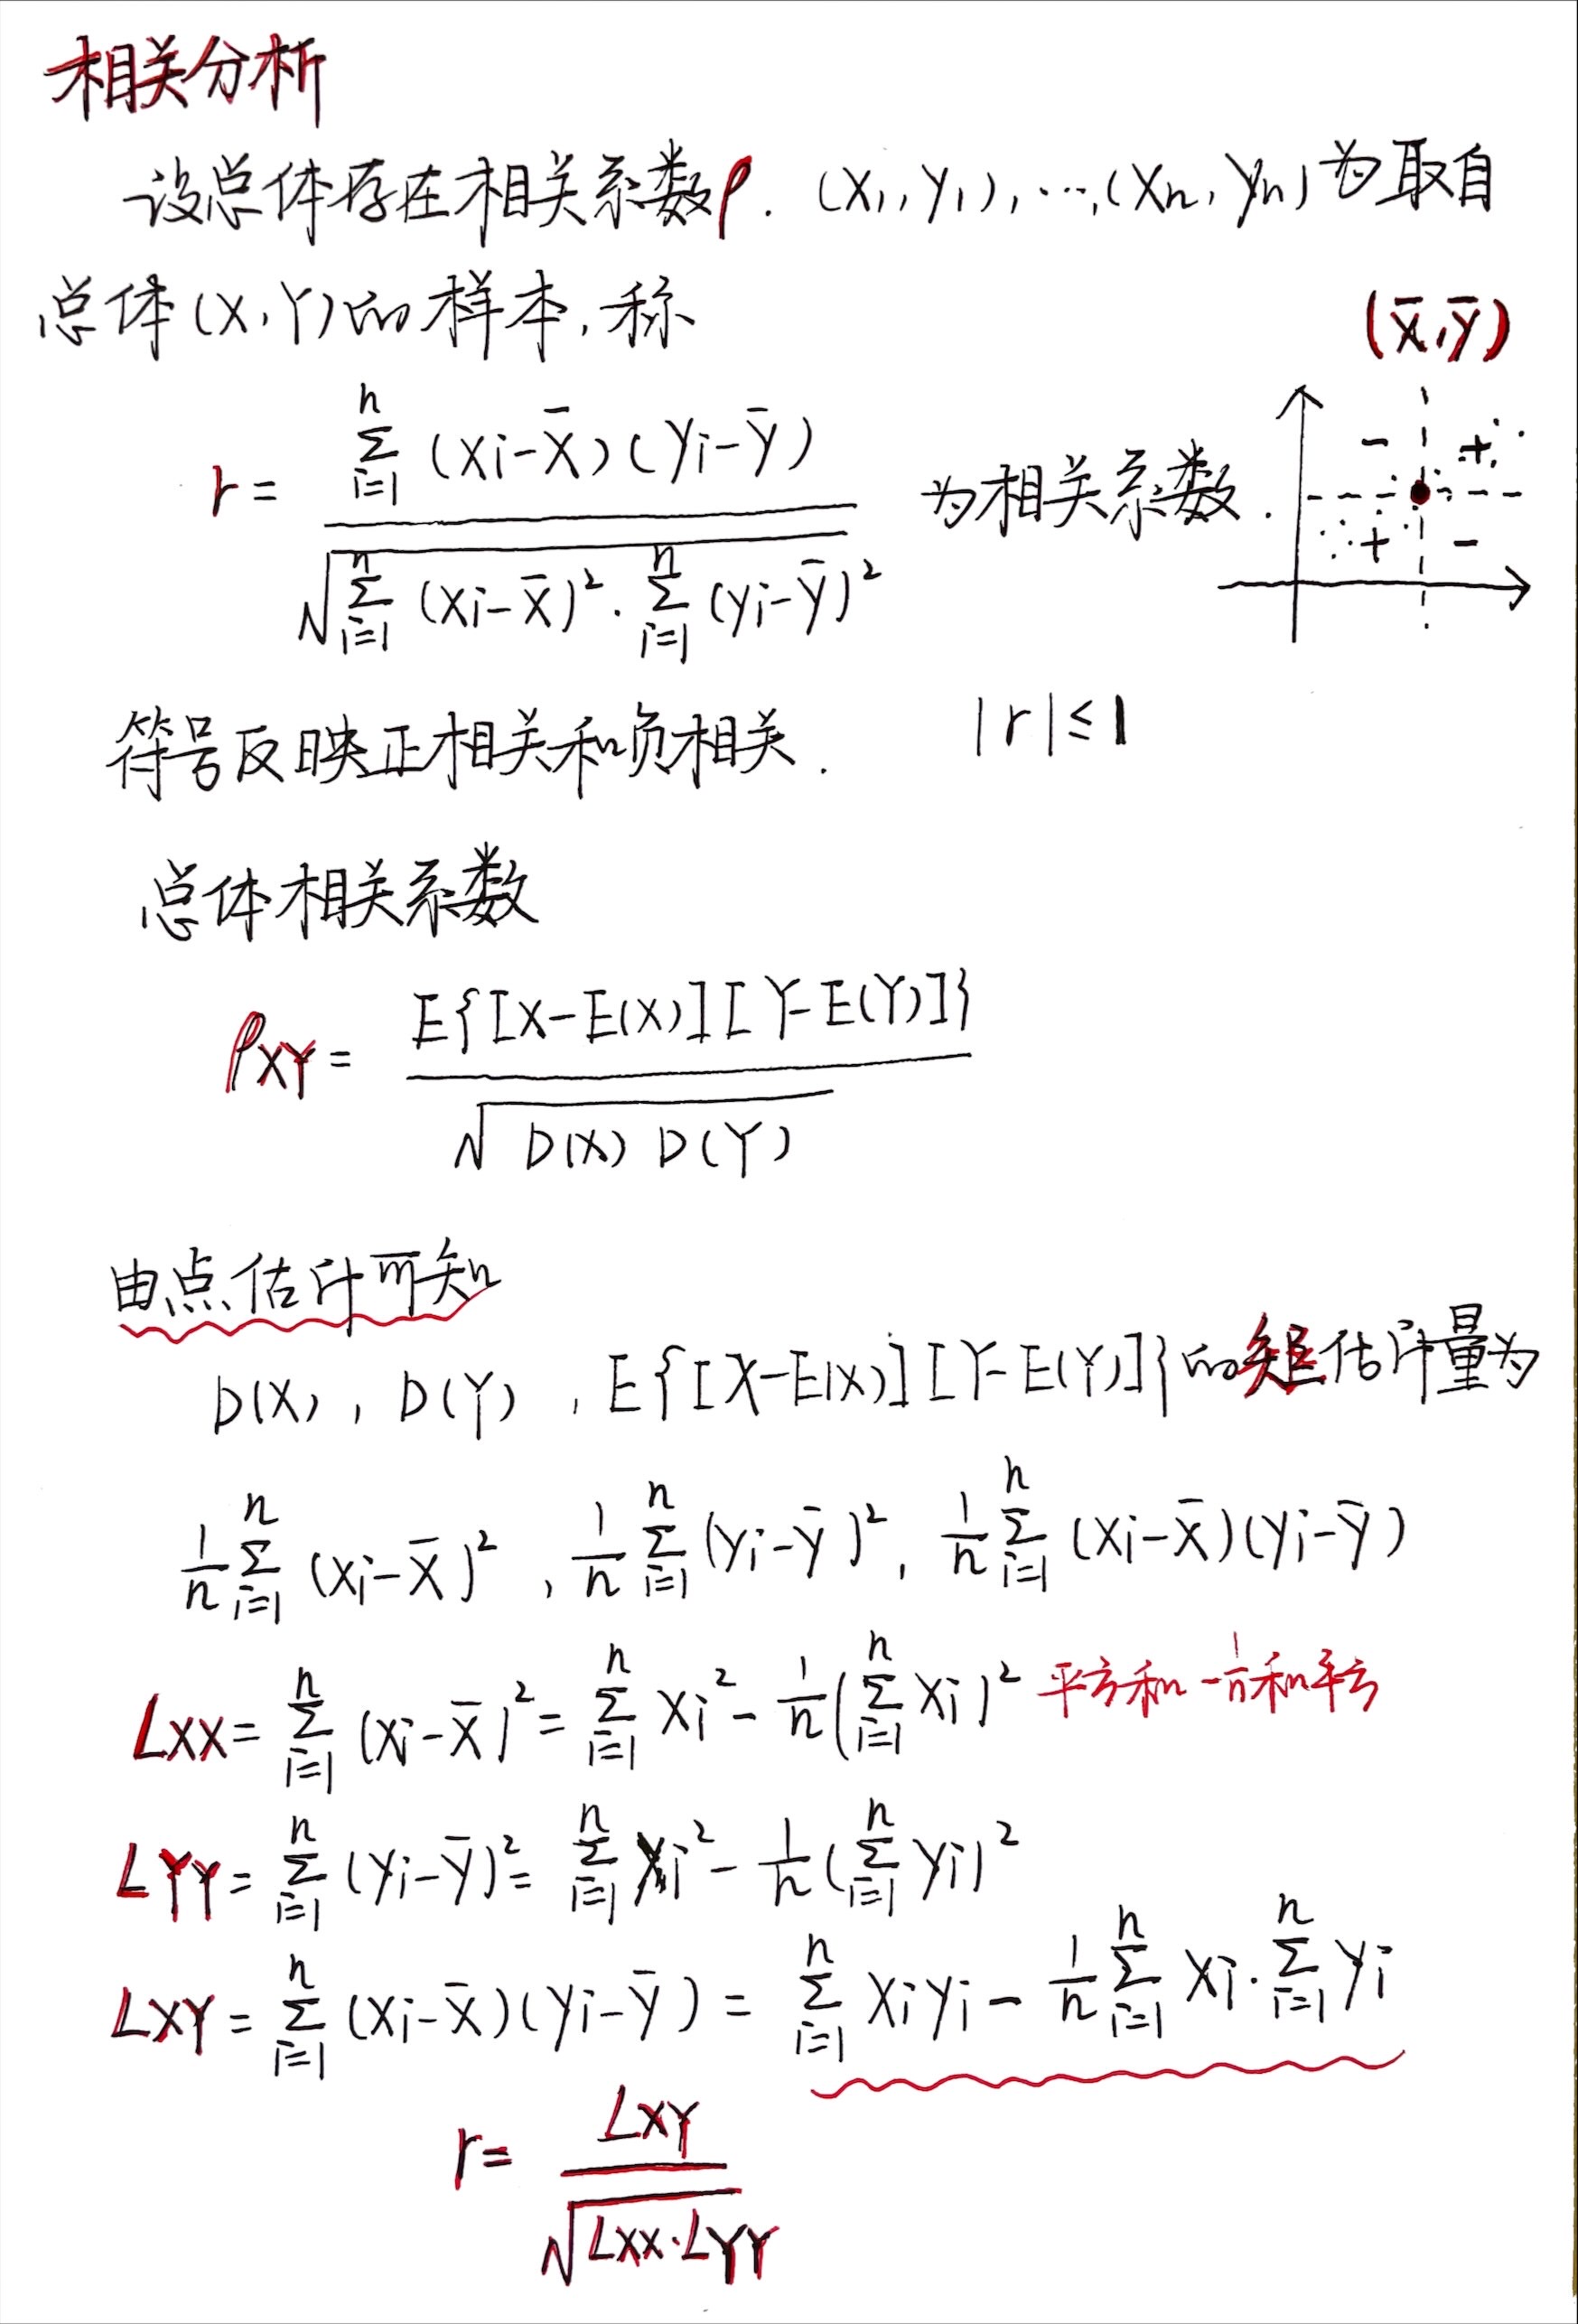 相关分析
设总体存在相关系数ρ. (x₁, y₁), ⋯, (xₙ, yₙ) 为取自
总体 (X, Y) 的样本, 称
(x̄, ȳ)
r = \frac{\sum_{i=1}^{n} (x_i - \bar{x})(y_i - \bar{y})}{\sqrt{\sum_{i=1}^{n} (x_i - \bar{x})^2 \cdot \sum_{i=1}^{n} (y_i - \bar{y})^2}} 为相关系数.
- +
+ -
符号反映正相关和负相关. |r| ≤ 1
总体相关系数
ρ_{XY} = \frac{E\{[X - E(X)][Y - E(Y)]\}}{\sqrt{D(X) D(Y)}}
由点估计可知
D(X), D(Y), E{[X - E(X)][Y - E(Y)]} 的矩估计量为
\frac{1}{n}\sum_{i=1}^{n} (x_i - \bar{x})^2, \frac{1}{n}\sum_{i=1}^{n} (y_i - \bar{y})^2, \frac{1}{n}\sum_{i=1}^{n} (x_i - \bar{x})(y_i - \bar{y})
L_{XX} = \sum_{i=1}^{n} (x_i - \bar{x})^2 = \sum_{i=1}^{n} x_i^2 - \frac{1}{n}(\sum_{i=1}^{n} x_i)^2 平方和 - \frac{1}{n} 和平方
L_{YY} = \sum_{i=1}^{n} (y_i - \bar{y})^2 = \sum_{i=1}^{n} y_i^2 - \frac{1}{n}(\sum_{i=1}^{n} y_i)^2
L_{XY} = \sum_{i=1}^{n} (x_i - \bar{x})(y_i - \bar{y}) = \sum_{i=1}^{n} x_i y_i - \frac{1}{n}\sum_{i=1}^{n} x_i \cdot \sum_{i=1}^{n} y_i
r = \frac{L_{XY}}{\sqrt{L_{XX} \cdot L_{YY}}}